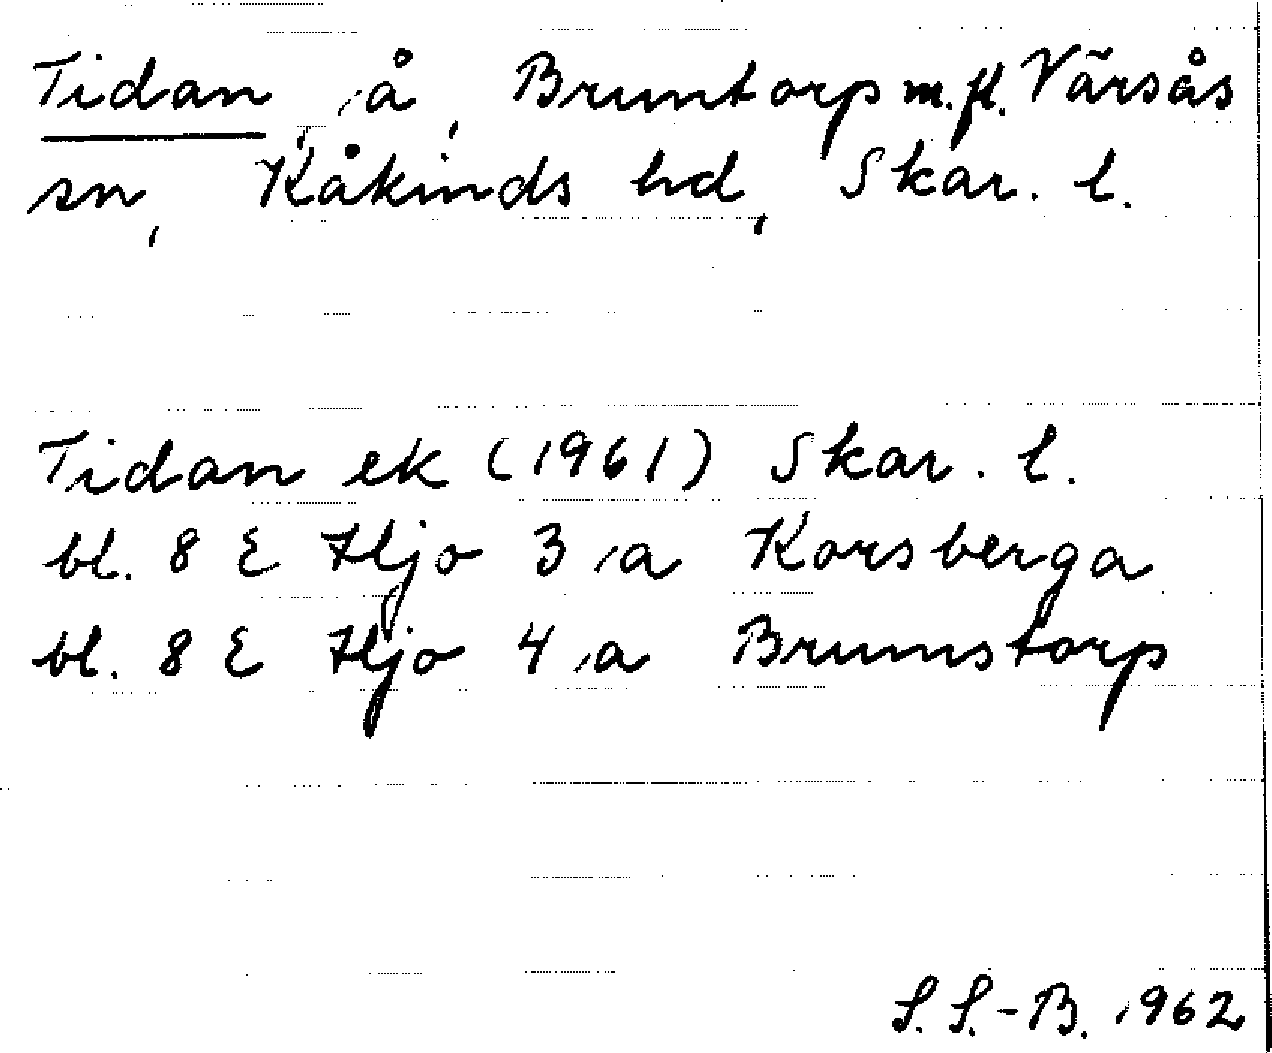 Tidan, å, Bruntorp m.fl. Värsås
sn, Kåkinds hd, Skar. l.
Tidan ek (1961) Skar. l.
bl. 8 E Hjo 3 a Korsberga
bl. 8 E Hjo 4 a Brumstorp
S. S.-B. 1962